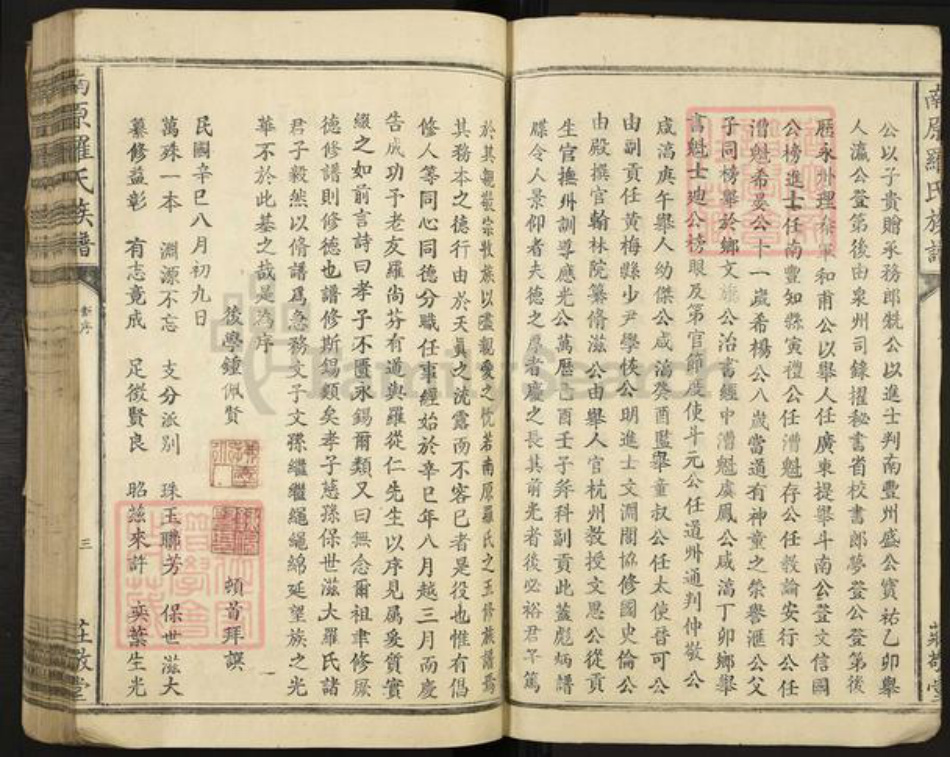 南原羅氏族譜
公以子貴贈承務郎甡公以進士判南豐州盛公寶祐乙卯舉
人瀛公登第後由泉州司錄擢秘書省校書郎夢登公登第後
歷永州理 和甫公以舉人任廣東提舉斗南公登文信國
公榜進士任南豐知縣寅禮公任漕魁存公任教諭安行公任
漕魁希晏公十一歲希楊公八歲當道有神童之榮譽滙公父
子同榜舉於鄉文 公治書經中漕魁虞鳳公咸淳丁卯鄉舉
書魁士迪公榜眼及第官節度使斗元公任道州通判仲敬公
咸淳庚午舉人幼傑公咸淳癸酉監舉童叔公任太使晉可公
由副貢任黃梅縣少尹學俠公明進士文淵閣協修國史倫公
由殿撰官翰林院纂脩滋公由舉人官杭州教授文恩公從貢
生官撫州訓導應光公萬曆己酉壬子 科副貢此蓋彪炳譜
牒令人景仰者夫德之厚者慶之長其前光者後必裕君子篤
莊敬堂
於其親敬宗收族以盡親愛之忱若南原羅氏之五修族譜焉
其務本之德行由於天真之流露而不容已者是役也惟有倡
修人等同心同德分職任事經始於辛巳年八月越三月而慶
告成功予老友羅尚芬有道與羅從仁先生以序見屬爰質實
綴之如前言詩曰孝子不匱永錫爾類又曰無念爾祖聿修厥
德修譜則修德也譜修斯錫類矣孝子慈孫保世滋大羅氏諸
君子毅然以脩譜爲急務文子文孫繼繼繩繩綿延望族之光
華不於此基之哉是為序
後學鍾佩賢 頓首拜譔
民國辛巳八月初九日
萬殊一本 淵源不忘 支分派別 珠玉聯芳 保世滋大
纂修益彰 有志竟成 足徵賢良 昭玆來許 奕葉生光
南原羅氏族譜 序 三 莊敬堂
FamilySearch